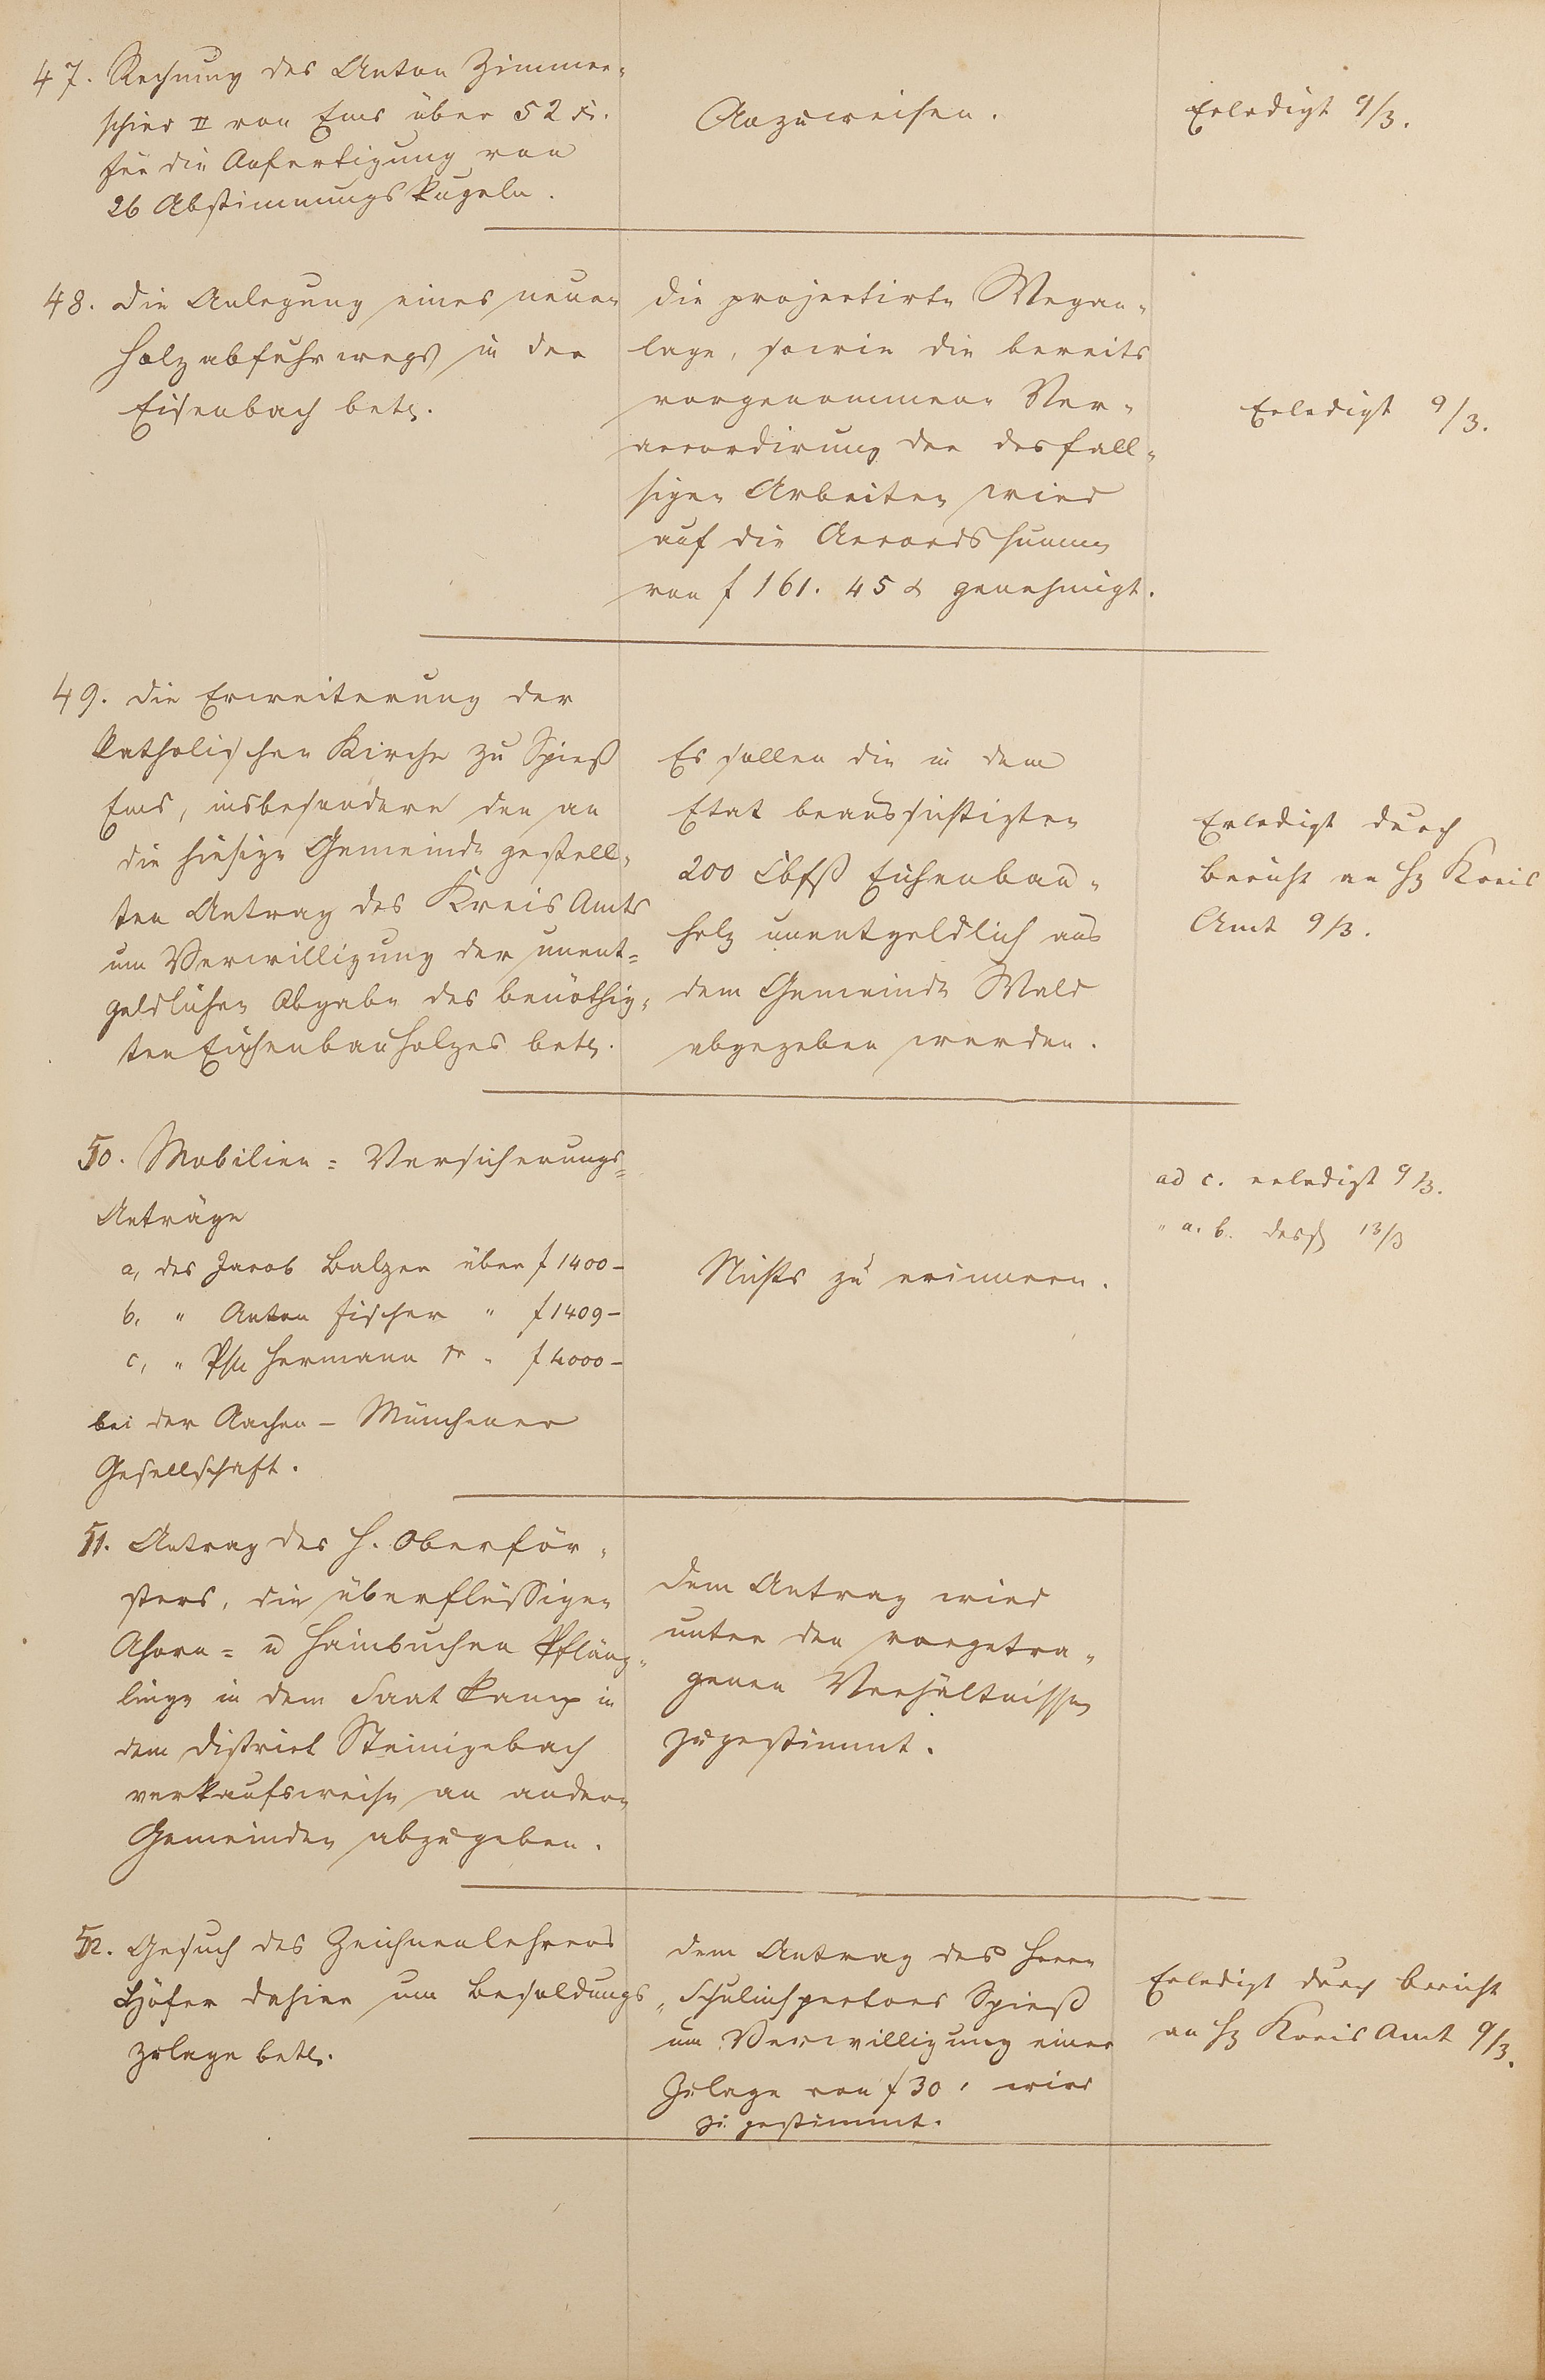 47. Rechnung des Anton Zimmer-
schied II von Ems über 52 xr.
für die Anfertigung von
26 Abstimmungskugeln.
Anzuweisen.
Erledigt 9/3.
48. Die Anlegung eines neuen
Holzabfuhrwegs in der
Eisenbach betr.
Die projectirte Wegan-
lage, sowie die bereits
vorgenommene Ver-
accordirung der desfall-
sigen Arbeiten wird
auf die Accordssumme
von f 161. 45 x genehmigt.
Erledigt 9/3.
49. Die Erweiterung der
katholischen Kirche zu Spieß
Ems, insbesondere den an
die hiesige Gemeinde gestell-
ten Antrag des Kreis Amts
um Verwilligung der unent=
geldlichen Abgabe des benöthig-
ten Eichenbauholzes betr.
Es sollen die in dem
Etat beaufsichtigten
200 Cbfß Eichenbau-
holz unentgeldlich aus
dem Gemeinde Wald
abgegeben werden.
Erledigt durch
Bericht an Hz Kreis
Amt 9/3.
50. Mobilien = Versicherungs=
Anträge
a, des Jacob Balzer über f 1400 –
b, " Anton Fischer " f 1409 –
c, " Phil Hermann " f 4000 –
bei der Aachen – Münchener
Gesellschaft.
Nichts zu erinnern.
ad c. erledigt 9/3.
" a. b. desgl 13/3
51. Antrag des H. Oberför-
sters, die überflüssigen
Ahorn = u Hainbuchen Pflänz-
linge in dem Saatkamp in
dem District Steinigebach
verkaufsweise an andere
Gemeinden abzugeben.
Dem Antrag wird
unter den vorgetra-
genen Verhältnissen
zugestimmt.
52. Gesuch des Zeichnenlehrers
Höfer dahier um Besoldungs
zulage betr.
Dem Antrag des Herrn
Schulinspectors Spieß
um Verwilligung einer
Zulage von f 30, wird
zugestimmt.
Erledigt durch Bericht
an Hz Kreis Amt 9/3.